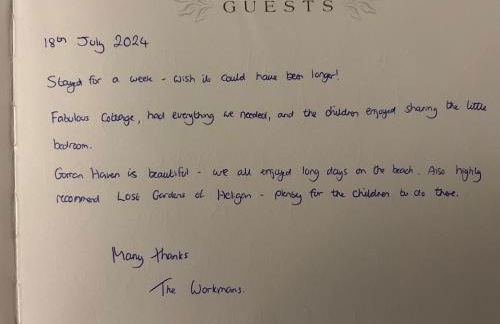 GUESTS
18th July 2024
Stayed for a week - wish it could have been longer!
Fabulous Cottage, had everything we needed, and the children enjoyed sharing the little
bedroom.
Gorran Haven is beautiful - we all enjoyed long days on the beach. Also highly
recommend Lost Gardens of Heligan - plenty for the children to do there.
Many thanks
The Workmans.